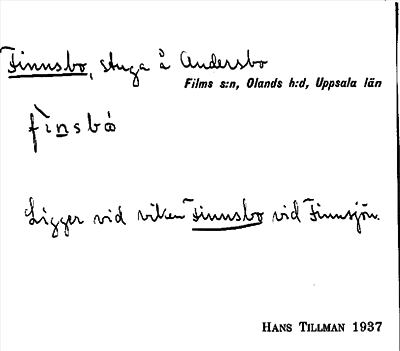 Finnsbo, stuga å Andersbo
Films s:n, Olands h:d, Uppsala län
Ligger vid viken Finnsbo vid Finnsjön.
HANS TILLMAN 1937